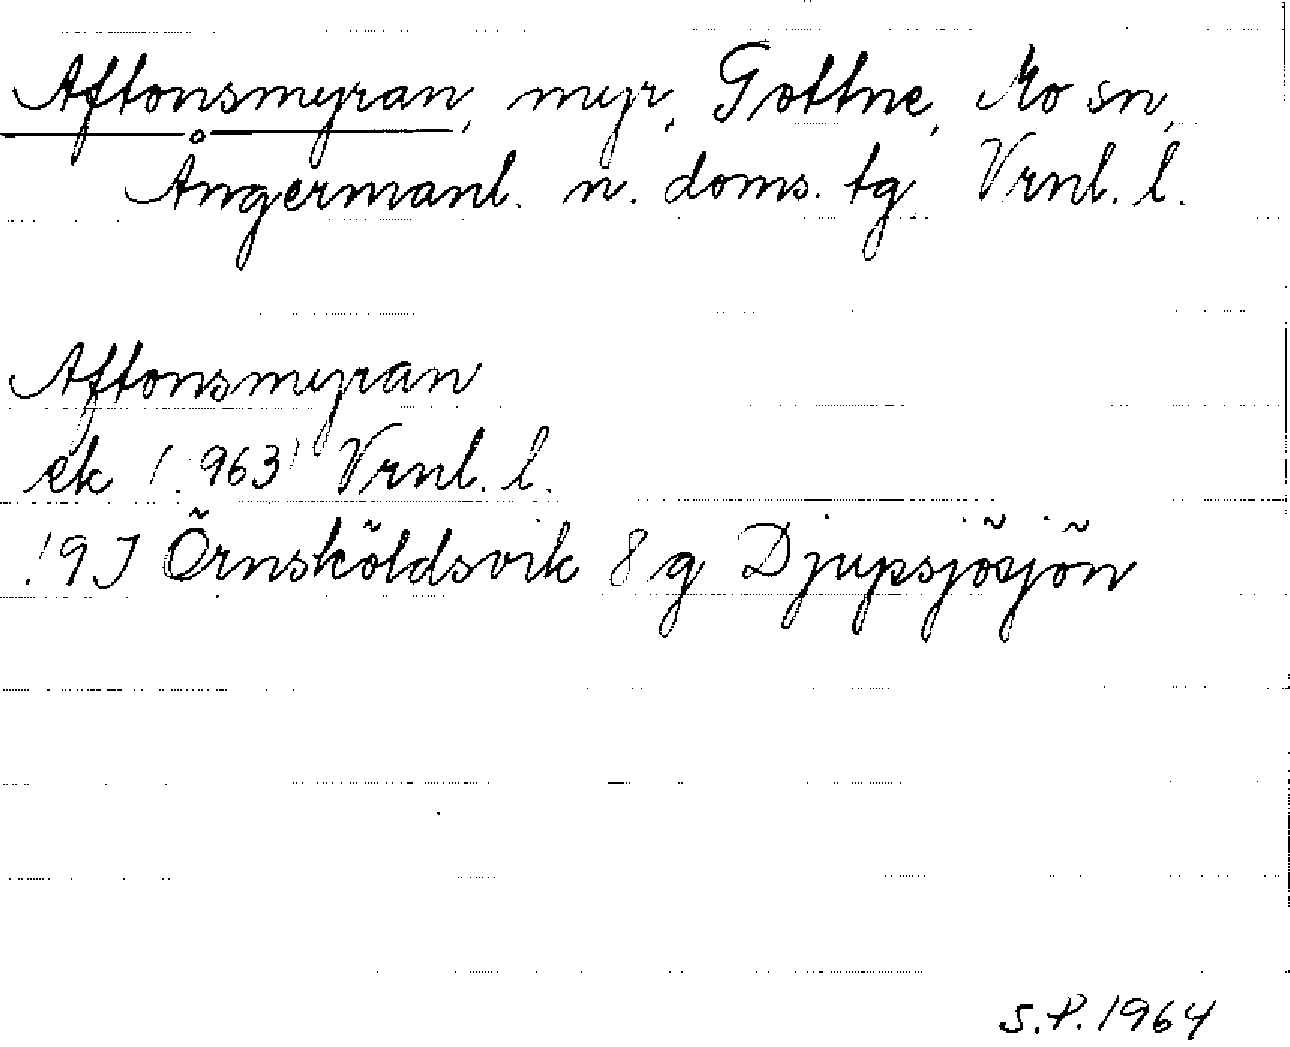 Aftonsmyran, myr, Gottne, Mo sn,
Ångermanl. n. doms. tg Vrnl. l.
Aftonsmyran
ek (1963) Vrnl. l.
19J Örnsköldsvik 8g Djupsjösjön
S.P. 1964